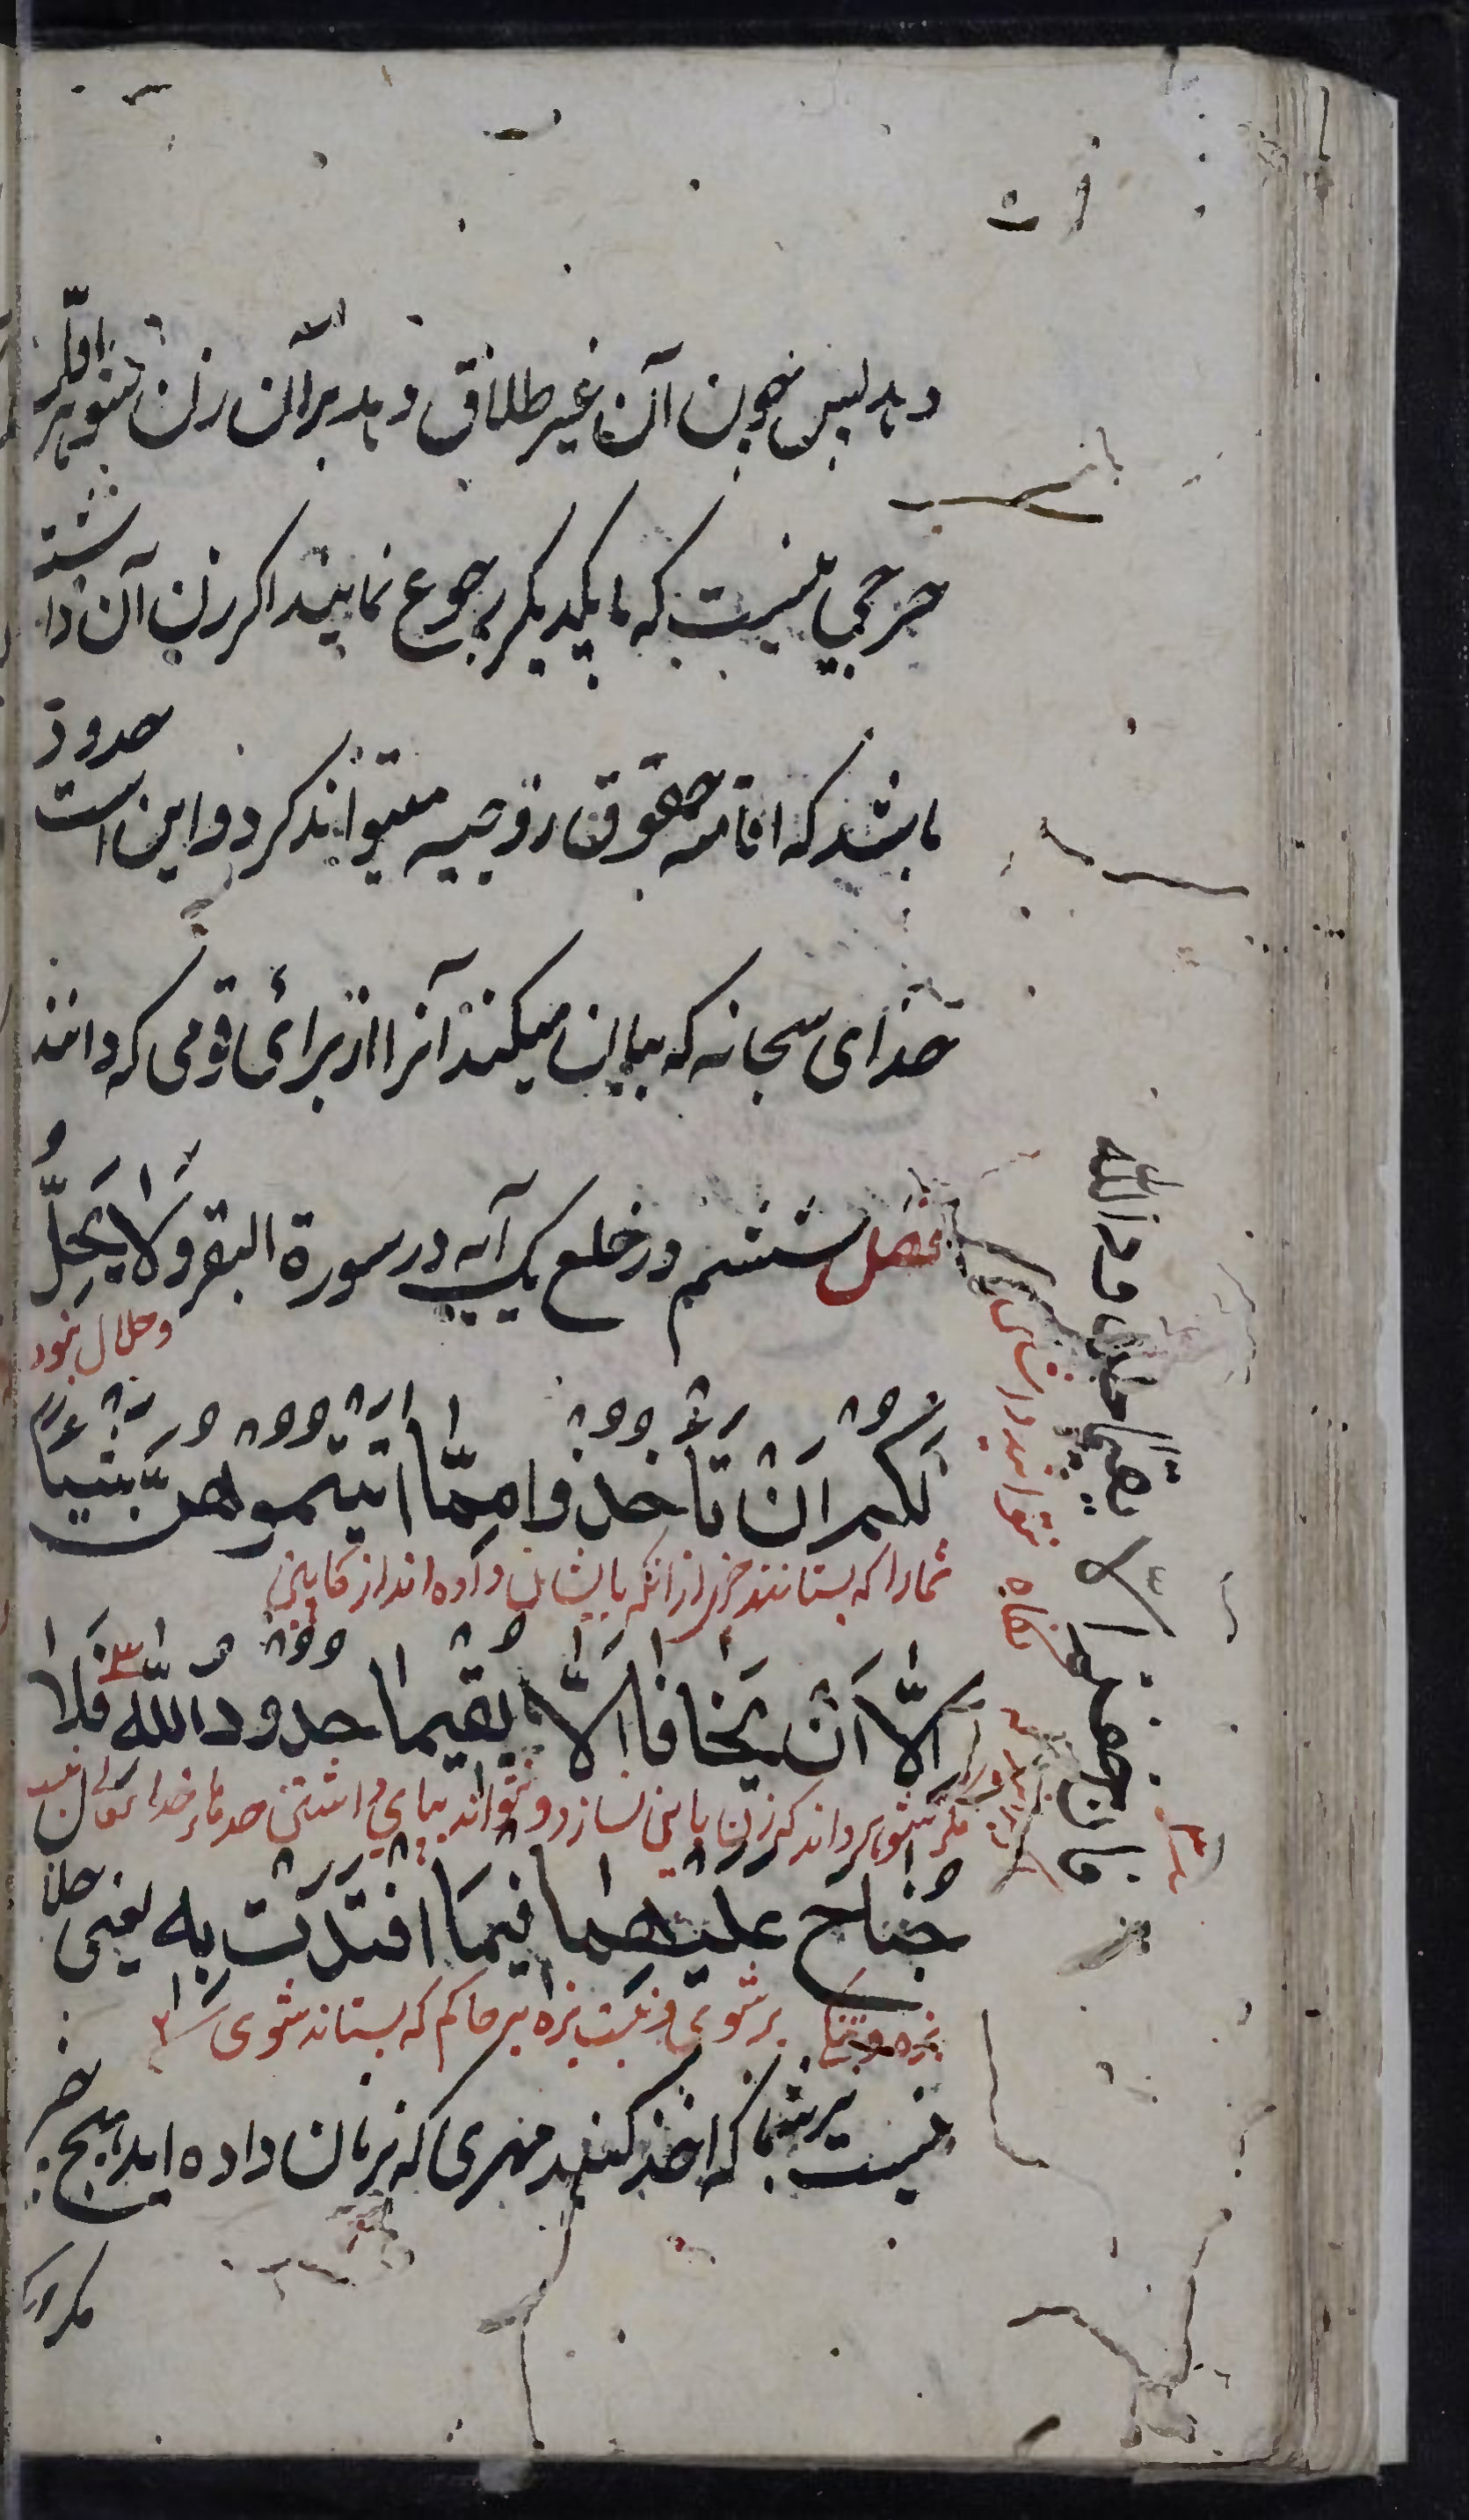 دهد پس چون آن غیر طلاق دهد بر آن زن شوهر اول
حرجی نیست که با یکدیگر رجوع نمایند اگر زن آن داشته
باشد که اقامه حقوق زوجیه میتواند کرد و این است حدود
خدای سبحانه که بیان میکند آنرا از برای قومی که دانند
فصل ششم در خلع یک آیه در سورة البقر وَلَا يَحِلُّ
وحلال نبود
لَكُمْ اَنْ تَأخُذُوا مِمَّا اتَيْتُمُوهُنَّ شَيْئًا
شمارا که بستانند چیزی از انکه بایشان داده اند از کابین
اِلَّا اَنْ يَخَافَا اَلَّا يُقِيمَا حُدُودَ اللّٰه فَلَا
مگر شوهر داند که زن با این نسازد و نتواند بپای داشتن حدهای خدا
جُنَاحَ عَلَيْهِمَا فِيمَا افْتَدَتْ بِه یعنی حلال
بر شوی و نیست بزه بر حاکم که بستاند شوی را
نیست بر شما که اخذ کنید مهری که بزنان داده اید هیچ چیز
مگر آنکه
فان خفتم الا یقیما حدود الله